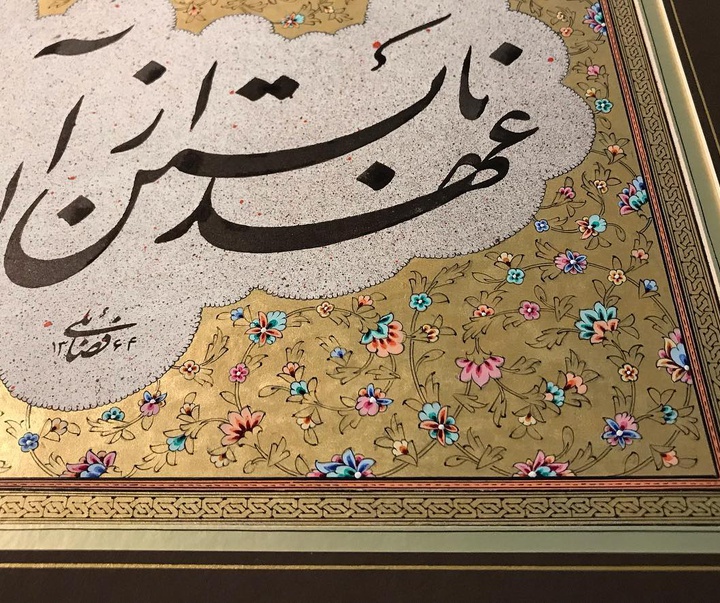 عهد نابستن از
فضائلی ۱۳۶۴